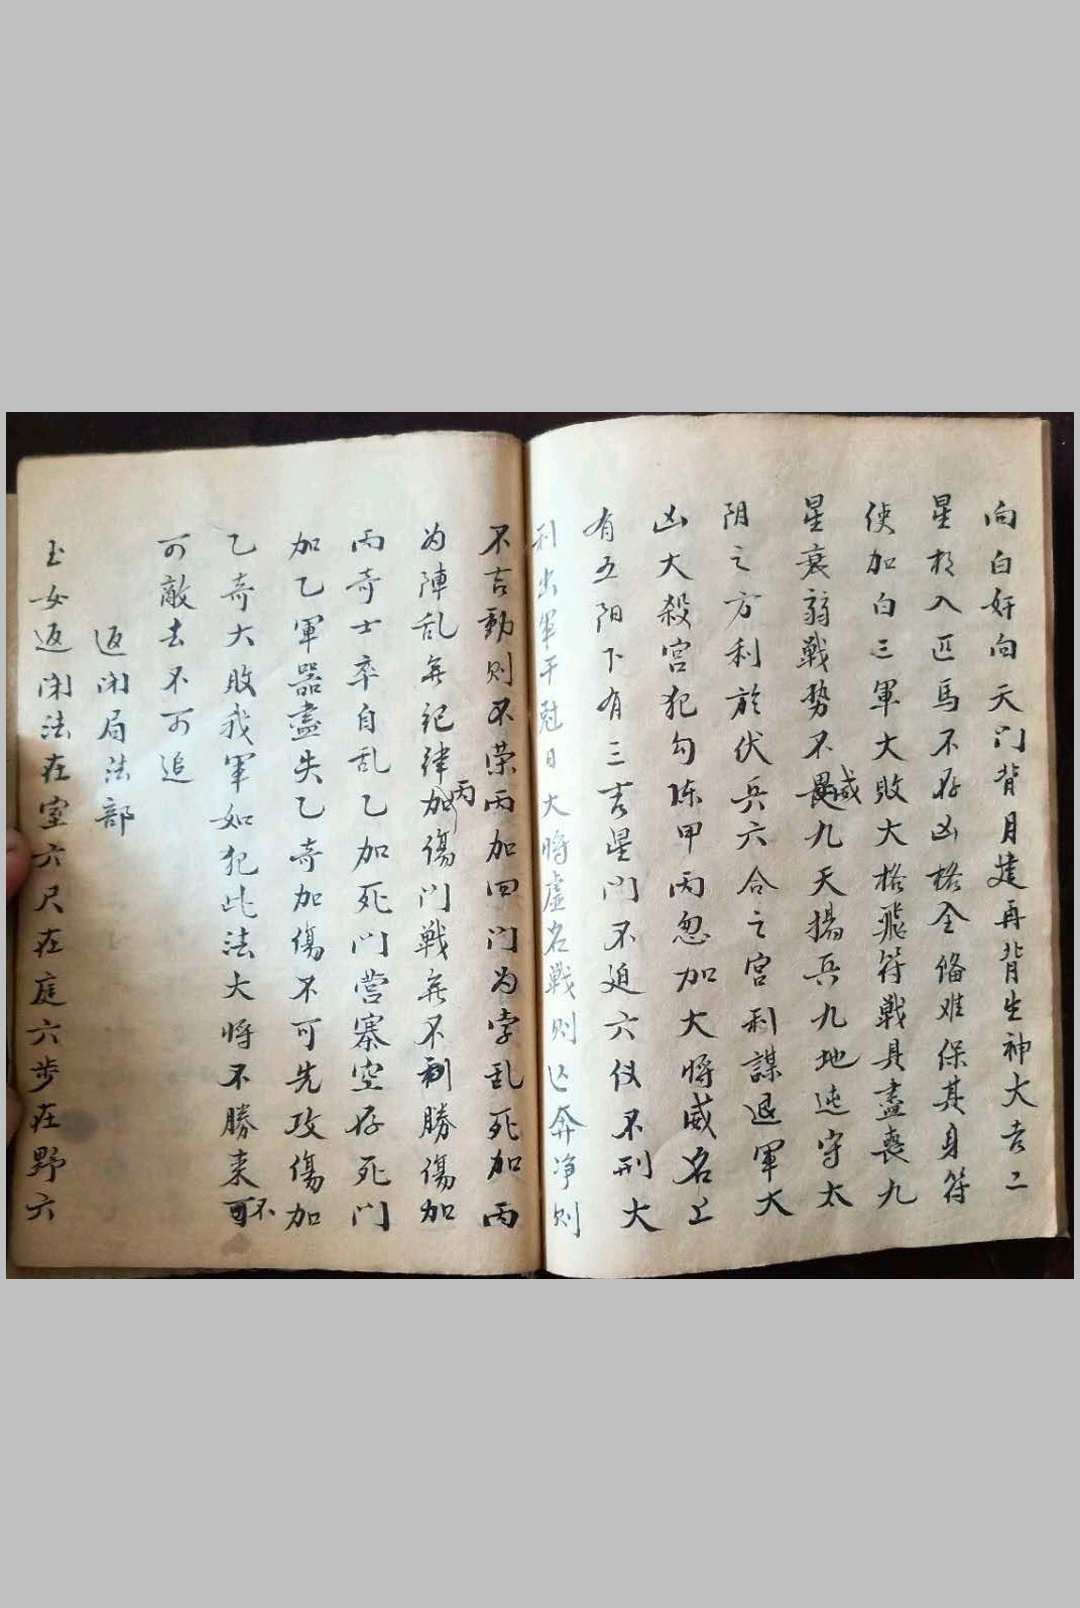 向白奸向天门背月建再背生神大吉二
星格入匹馬不存凶格全俻难保其身符
使加白三軍大敗大格飛符戰具盡喪九
星衰弱戰势不威九天揚兵九地迯守太
阴之方利於伏兵六合之宫利謀退軍大
凶大殺宫犯勾陈甲丙忽加大將威名上
有五阳下有三吉星门不迫六仪不刑大
利出軍干尅日大將虚名戰则迯奔净则
不吉動则不荣丙加四门为孛乱死加丙
为陣乱無纪律丙加傷门戰無不利勝傷加
丙奇士卒自乱乙加死门营寨空存死门
加乙軍器盡失乙奇加傷不可先攻傷加
乙奇大敗我軍如犯此法大將不勝来不可
可敵去不可追
返闭局法部
玉女返闭法在室六尺在庭六步在野六